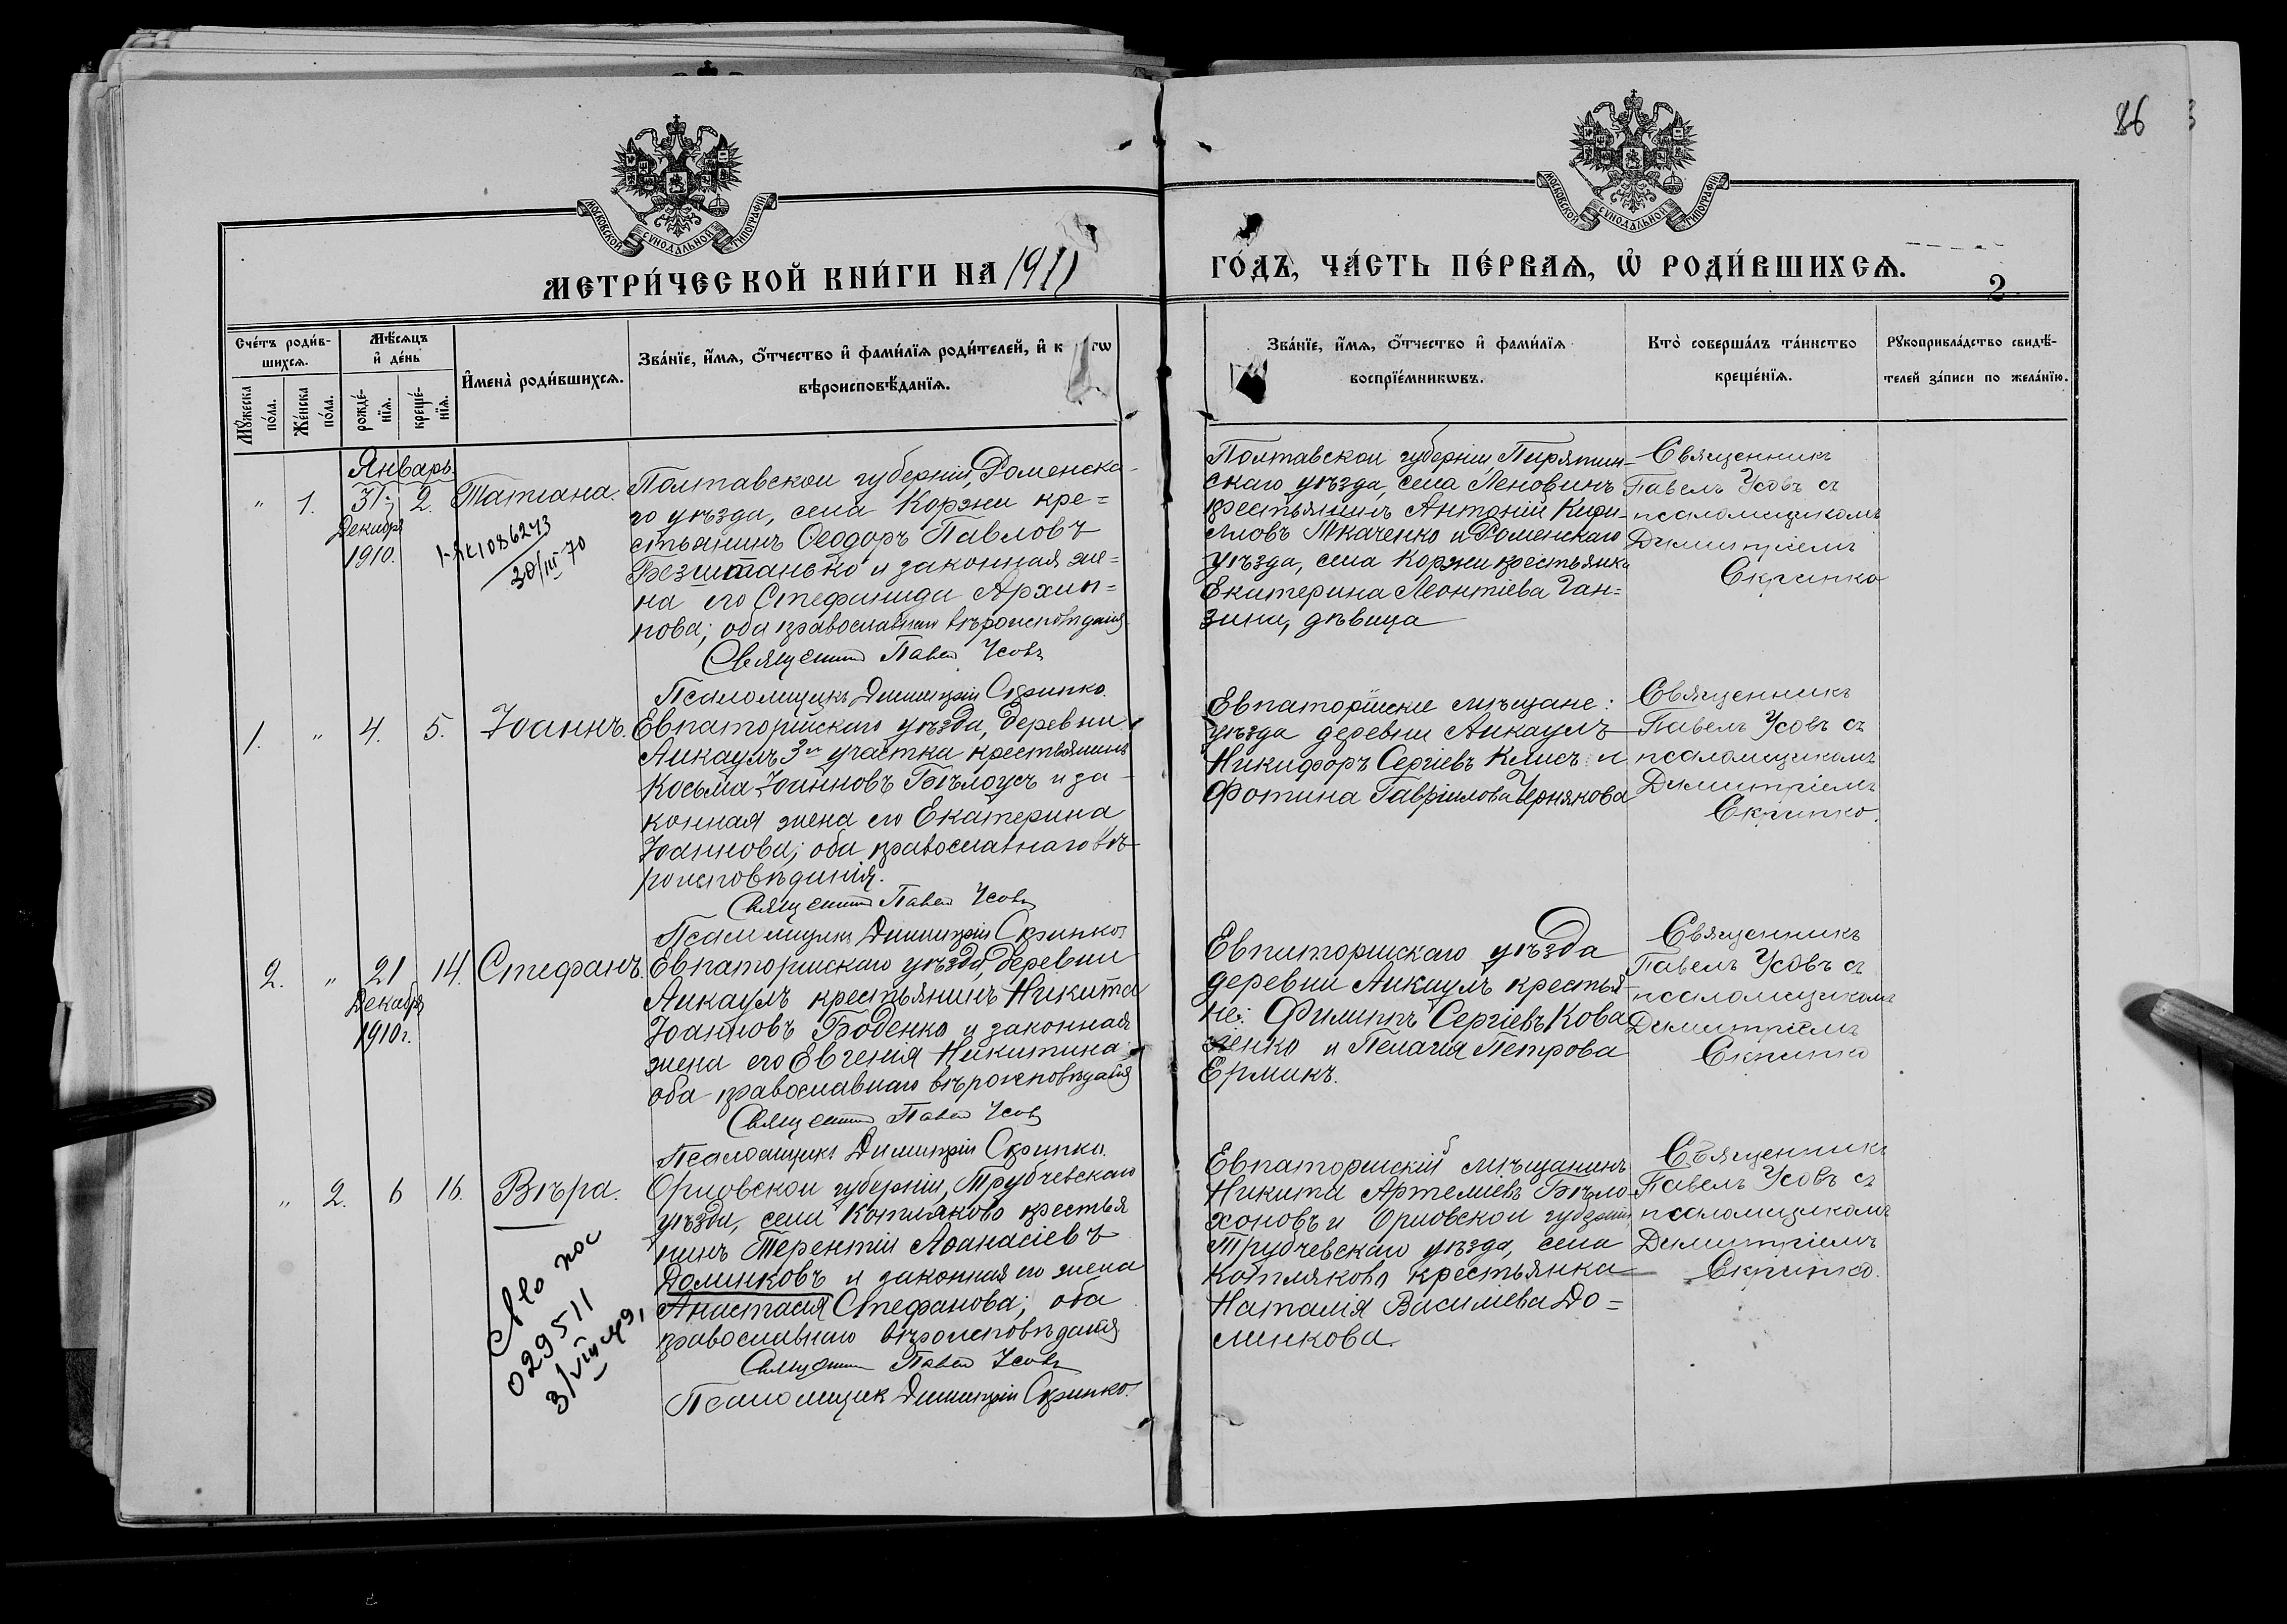 86
МОСКОВСКОЙ СѴНОДАЛЬНОЙ ТИПОГРАФІИ
МОСКОВСКОЙ СѴНОДАЛЬНОЙ ТИПОГРАФІИ
МЕТРИ́ЧЕСКОЙ КНИ́ГИ НА 1911
ГО́ДЪ, ЧА́СТЬ ПЕ́РВАѦ, Ѽ РОДИ́ВШИХСѦ.
2
Сче́тъ роди́в-
шихсѧ.
Мꙋ́жеска
по́ла.
Же́нска
по́ла.
Мѣ́сѧцъ
и҆ де́нь
рожде́-
нїѧ.
креще́-
нїѧ.
И҆мена̀ роди́вшихсѧ.
Зва́нїе, и҆́мѧ, ѻ҆́тчество и҆ фами́лїѧ роди́телей, и҆ к гѡ
вѣроисповѣ́данїѧ.
Зва́нїе, и҆́мѧ, ѻ҆́тчество и҆ фами́лїѧ
воспрїе́мникѡвъ.
Кто̀ соверша́лъ та́инство
креще́нїѧ.
Рꙋкоприкла́дство свидѣ́-
телей за́писи по жела́нїю.
Январь.
" 1. 31 2. Татiана.
Декабря
1910.
1086243
30/III 70
Полтавской губернiи, Роменска-
го уѣзда, села Коржи кре=
стьянинъ Ѳеодоръ Павловъ
Безштанько и законная же=
на его Стефанида Архип=
пова; оба православнаго вѣроисповѣданiя
Священник Павел Усовъ
Псаломщикъ Димитрiй Скрипко.
Полтавской губернiи, Пирятин-
скаго уѣзда, села Леновинъ
крестьянинъ Антонiй Кири-
лловъ Ткаченко и Роменскаго
уѣзда, села Коржи крестьянка
Екатерина Леонтiева Ган=
зина, дѣвица
Священникъ
Павелъ Усовъ съ
псаломщикомъ
Димитрiемъ
Скрипко
1. " 4. 5. Iоаннъ.
Евпаторiйскаго уѣзда, деревни
Аикаулъ 3го участка крестьянинъ
Косьма Iоанновъ Бѣлоусъ и за-
конная жена его Екатерина
Iоаннова; оба православнаго вѣ-
роисповѣданiя.
Священник Павел Усовъ
Псаломщикъ Димитрiй Скрипко
Евпаторiйскiе мѣщане:
уѣзда деревни Аикаулъ
Никифоръ Сергiевъ Клисъ и
Фотина Гаврiилова Чернякова
Священникъ
Павелъ Усовъ съ
псаломщикомъ
Димитрiемъ
Скрипко.
2. " 21 14. Стефанъ.
Декабря
1910г.
Евпаторiйскаго уѣзда, деревни
Аикаулъ крестьянинъ Никита
Iоанновъ Боденко и законная
жена его Евгенiя Никитина
оба православнаго вѣроисповѣданiя
Священник Павел Усовъ
Псаломщикъ Димитрiй Скрипко.
Евпаторiйскаго уѣзда
деревни Аикаулъ крестья-
не: Филиппъ Сергiевъ Кова
ленко и Пелагiя Петрова
Ермакъ.
Священникъ
Павелъ Усовъ съ
псаломщикомъ
Димитрiемъ
Скрипко
" 2. 6 16. Вѣра.
029511
Орловской губернiи, Трубчевскаго
уѣзда, села Котляково крестья
нинъ Терентiй Аѳанасiевъ
Долинковъ и законная его жена
Анастасiя Стефанова; оба
православнаго вѣроисповѣданiя
Священник Павел Усовъ
Псаломщик Димитрiй Скрипко.
Евпаторiйскiй мѣщанинъ
Никита Артемiевъ Бѣло-
хоновъ и Орловской губернiи,
Трубчевскаго уѣзда, села
Котляково крестьянка
Наталiя Василiева До=
линкова.
Священникъ
Павелъ Усовъ съ
псаломщикомъ
Димитрiемъ
Скрипко.